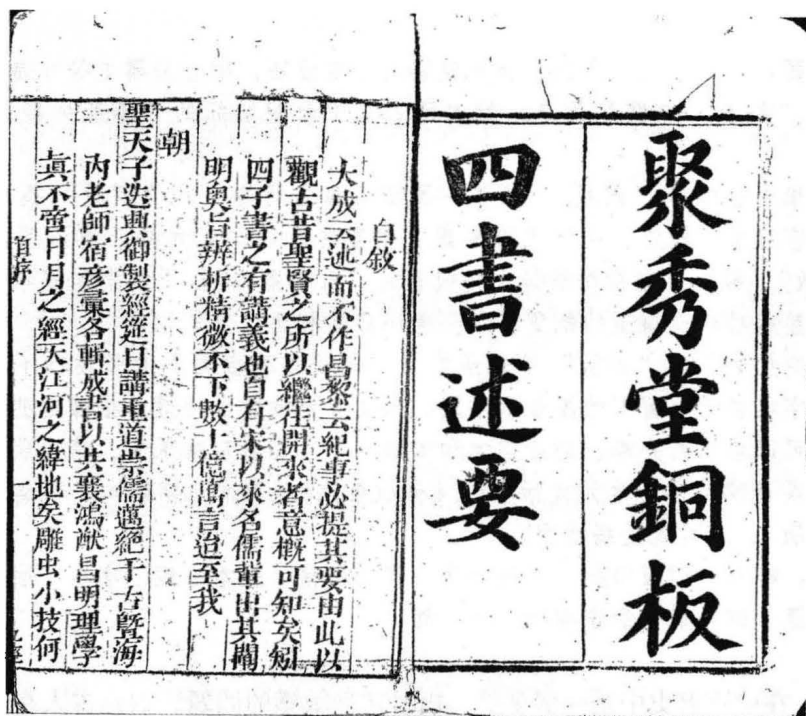 聚秀堂銅板
四書述要
自敘
大成云述而不作昌黎云紀事必提其要由此以
觀古昔聖賢之所以繼往開來者意槪可知矣矧
四子書之有講義也自有宋以來名儒輩出其闡
明奧旨辨析精微不下數十億萬言迨至我
朝
聖天子迭典御製經筵日講重道崇儒邁絕千古曁海
內老師宿彥彙各輯成書以共襄鴻猷昌明理學
眞不啻日月之經天江河之緯地矣雕虫小技何
自序
一